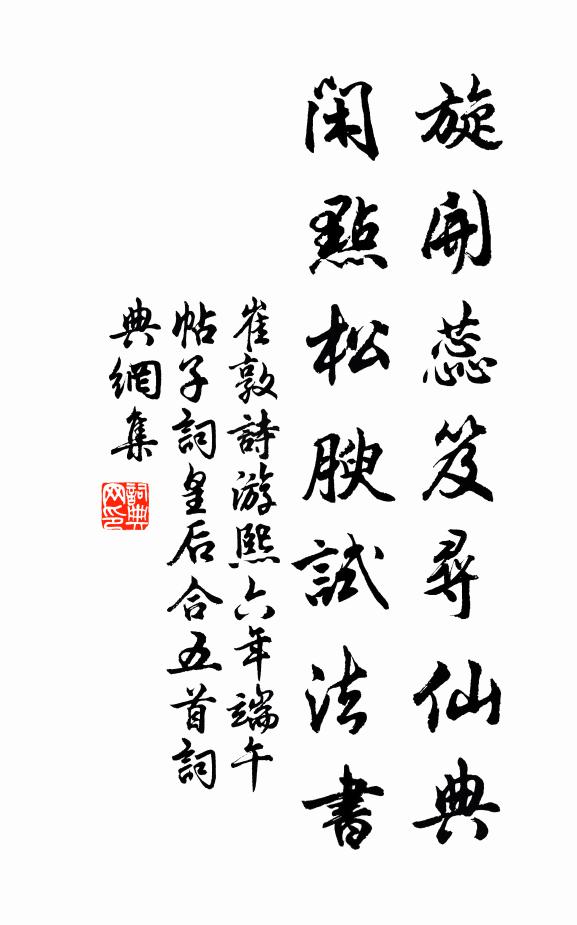 旋開蕊笈尋仙典
閑點松腴試法書
崔敦詩游熙六年端午
帖子詞皇后合五首詞
典網集
詞典
网印